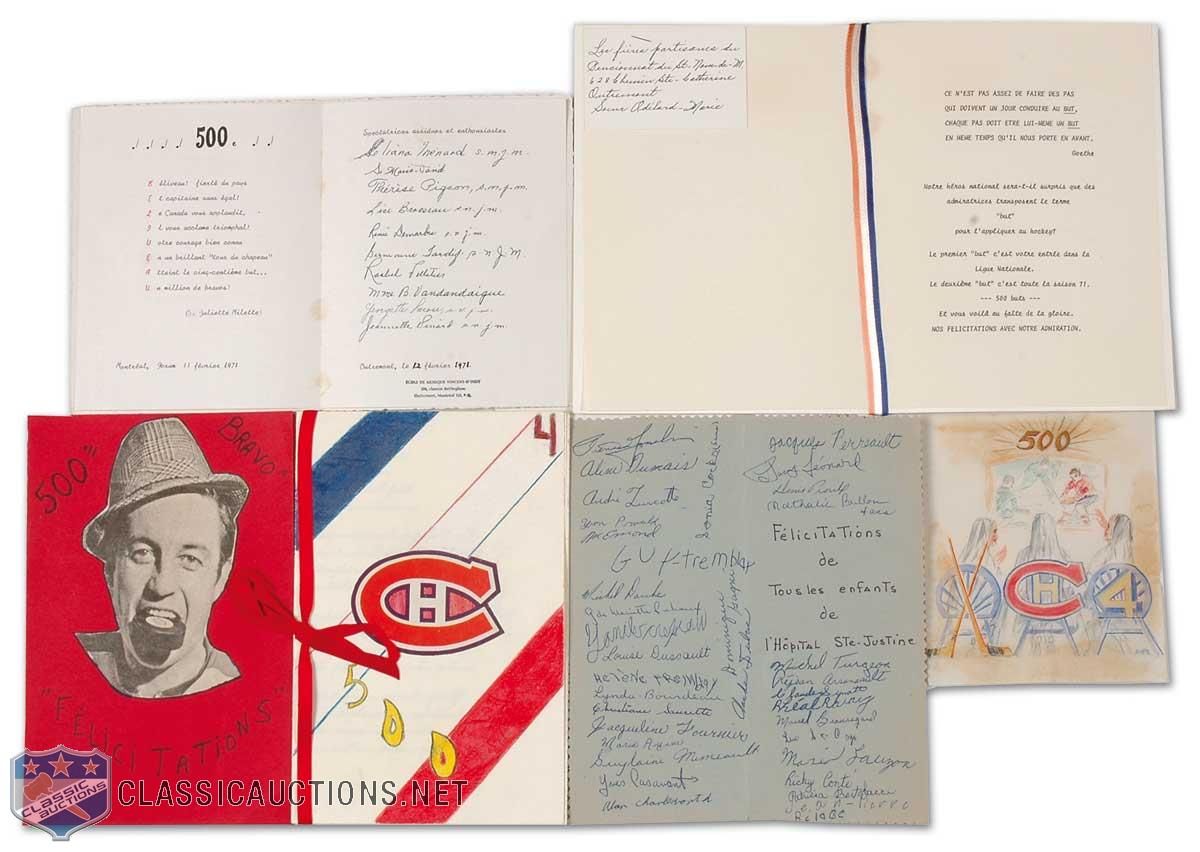 500e
B éliveau! fierté du pays
E t capitaine sans égal!
L e Canada vous applaudit,
I l vous acclame triomphal!
V otre courage bien connu
E n un brillant "tour du chapeau"
A tteint le cinq-centième but...
U n million de bravos!
Juliette Milette!
Montréal, Forum 11 février 1971
Spectatrices assidues et enthousiastes
Liliane Ménard s.n.j.m.
S. Marie-
Thérèse Pigeon, s.n.j.m.
Lise Brosseau s.n.j.m.
René Demarbre s.n.j.m.
Germaine Tardif s.n.J.M.
Rachel Pelletier
Mme B. Vandandaigue
Georgette
Jeannette Pinard s.n.j.m.
Outremont, le 12 février 1971.
ÉCOLE DE MUSIQUE VINCENT-D'INDY
200, chemin Bellingham
Outremont, Montréal 153, P.Q.
Les fières partisanes du
Pensionnat du St-Nom-de-M.
628 Chemin Ste-Catherine
Outremont
Soeur Adélard-Marie
CE N'EST PAS ASSEZ DE FAIRE DES PAS
QUI DOIVENT UN JOUR CONDUIRE AU BUT,
CHAQUE PAS DOIT ETRE LUI-MEME UN BUT
EN MEME TEMPS QU'IL NOUS PORTE EN AVANT.
Goethe
Notre héros national sera-t-il surpris que des
admiratrices transposent le terme
"but"
pour l'appliquer au hockey?
Le premier "but" c'est votre entrée dans la
Ligue Nationale.
Le deuxième "but" c'est toute la saison 71.
--- 500 buts ---
Et vous voilà au faîte de la gloire.
NOS FELICITATIONS AVEC NOTRE ADMIRATION.
"500"
BRAVO
"FÉLICITATIONS"
4
CH
500
Aline Dumais
André Turcotte
Yvon Romuald
McEmond
Sonia
GUY-tremblay
Michel
Yan
Louise Dussault
HELENE TREMBLAY
Lynda Bourdeau
Christiane Saucette
Jacqueline Fournier
Mario
Guylaine Mimeault
Yves Casavant
Alan Charlesworth
Dominique Gagné
Claude
Jacques Perreault
Guy Léonard
Denis Proulx
Nathalie Ballon
4 ans
Félicitations
de
Tous les enfants
de
l'Hôpital Ste-Justine
Michel Turgeon
Réjean Arsenault
Rhéal
Marcel Beauregard
Mario Lauzon
Ricky Conté
Patricia
500
CH 4
CLASSIC
AUCTIONS
CLASSICAUCTIONS.NET